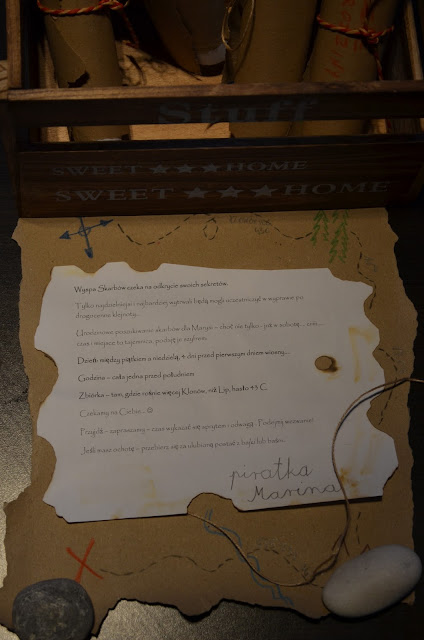 Stuff
SWEET ★★★ HOME
SWEET ★★★ HOME
Wyspa Skarbów czeka na odkrycie swoich sekretów.
Tylko najdzielniejsi i najbardziej wytrwali będą mogli uczestniczyć w wyprawie po
drogocenne klejnoty...
Urodzinowe poszukiwanie skarbów dla Marysi – choć nie tylko - już w sobotę ...
czas i miejsce to tajemnica, podaję je szyfrem.
Dzień między piątkiem a niedzielą, 4 dni przed pierwszym dniem wiosny....
Godzina – cała jedna przed południem
Zbiórka – tam, gdzie rośnie więcej Klonów, niż Lip, hasło C
Czekamy na Ciebie... ☺
Przyjdź – zapraszamy – czas wykazać się sprytem i odwagą. Podejmij wezwanie!
Jeśli masz ochotę – przebierz się za ulubioną postać z bajki lub baśni.
piratka
Marina